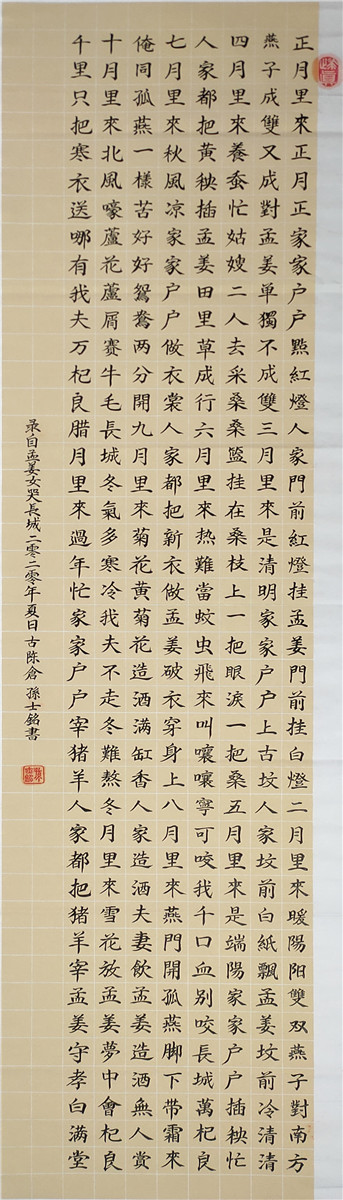 正月里來正月正家家户户點紅燈人家門前紅燈挂孟姜門前挂白燈二月里來暖陽阳雙双燕子對南方
燕子成雙又成對孟姜單獨不成雙三月里來是清明家家户户上古坟人家坟前白紙飄孟姜坟前冷清清
四月里來養蚕忙姑嫂二人去采桑桑籃挂在桑枝上一把眼淚一把桑五月里來是端陽家家户户插秧忙
人家都把黄秧插孟姜田里草成行六月里來热難當蚊虫飛來叫嚷嚷寧可咬我千口血别咬長城萬杞良
七月里來秋風凉家家户户做衣裳人家都把新衣做孟姜破衣穿身上八月里來燕門開孤燕脚下带霜來
俺同孤燕一樣苦好好鴛鴦两分開九月里來菊花黄菊花造酒满缸香人家造酒夫妻飲孟姜造酒無人賞
十月里來北風嚎蘆花蘆屑賽牛毛長城冬氣多寒冷我夫不走冬難熬冬月里來雪花放孟姜夢中會杞良
千里只把寒衣送哪有我夫万杞良腊月里來過年忙家家户户宰猪羊人家都把猪羊宰孟姜守孝白满堂
录自孟姜女哭長城二零二零年夏日古陈倉孫士銘書